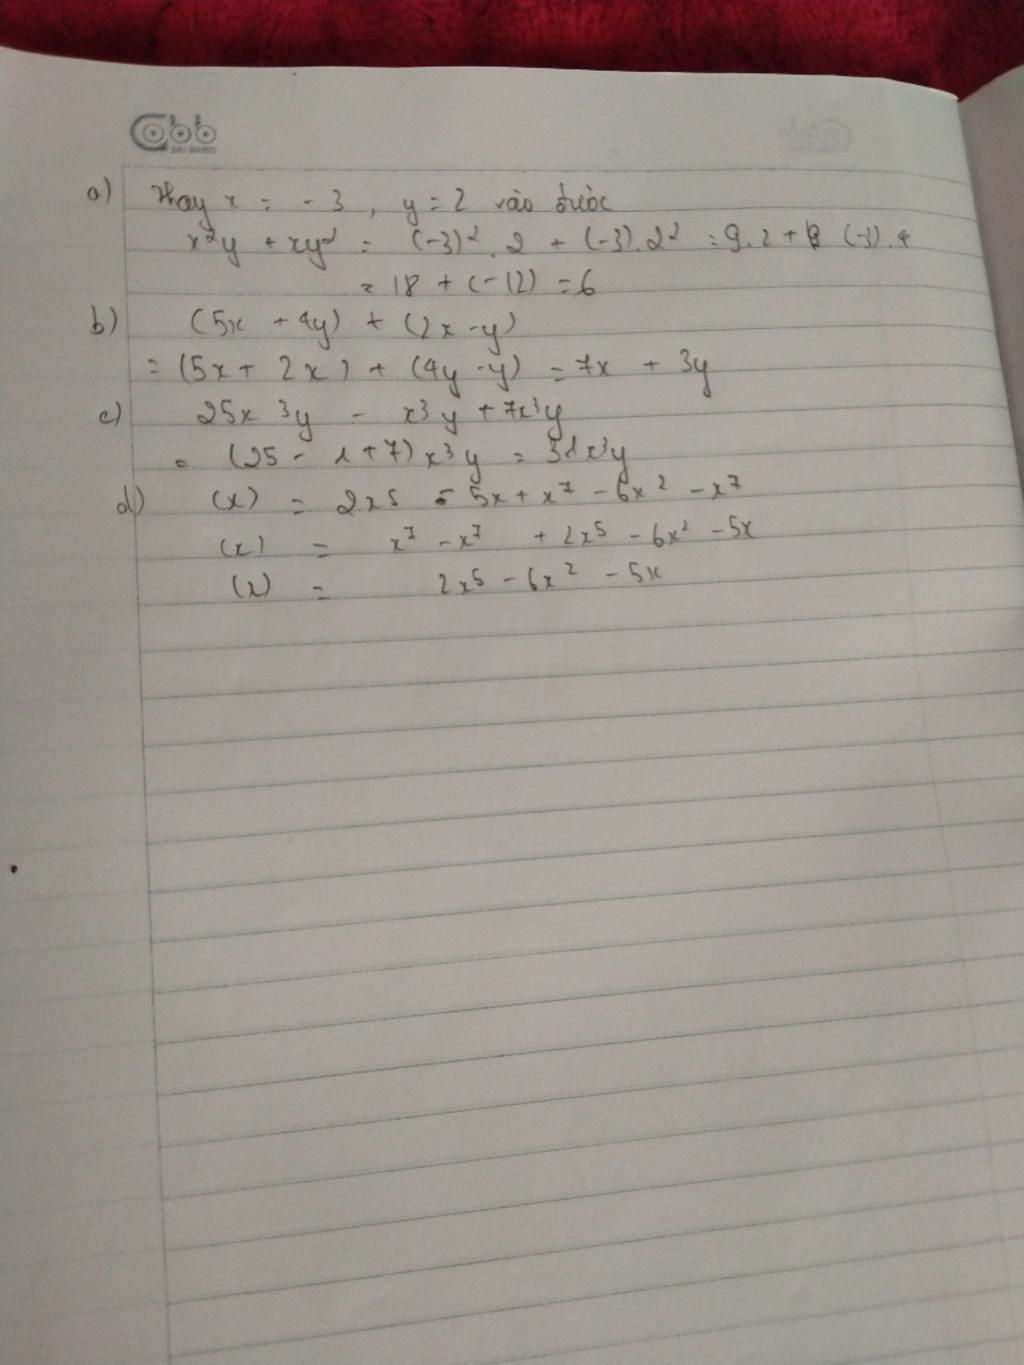 Cbb
a) Thay x = -3, y = 2 vào được
x²y + xy² = (-3)². 2 + (-3). 2² = 9. 2 + (-3). 4
= 18 + (-12) = 6
b) (5x + 4y) + (2x - y)
= (5x + 2x) + (4y - y) = 7x + 3y
c) 25x ³y - x³y + 7x³y
= (25 - 1 + 7) x³y = 31x³y
d) (x) = 2x5 - 5x + x⁷ - 6x² - x⁷
(x) = x⁷ - x⁷ + 2x⁵ - 6x² - 5x
(x) = 2x⁵ - 6x² - 5x